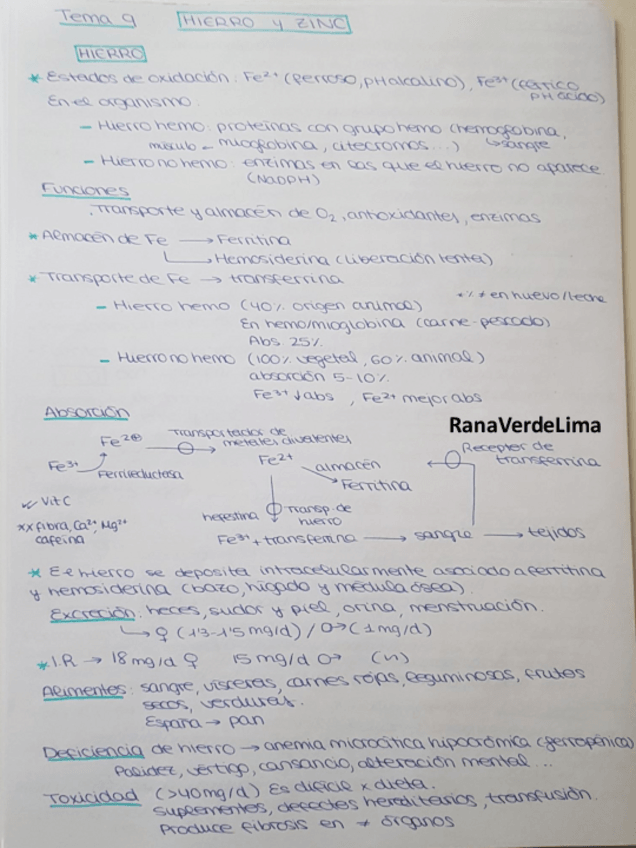 Tema 9 HIERRO y ZINC
HIERRO
* Estados de oxidación: Fe²⁺ (ferroso, pH alcalino), Fe³⁺ (férrico pH ácido)
En el organismo:
- Hierro hemo: proteínas con grupo hemo (hemoglobina, ↳ sangre
músculo ← mioglobina, citocromos...)
- Hierro no hemo: enzimas en las que el hierro no aparece
(NADPH)
Funciones
. Transporte y almacén de O₂, antioxidantes, enzimas
* Almacén de Fe → Ferritina
↳ Hemosiderina (liberación lenta)
* Transporte de Fe → transferrina
- Hierro hemo (40% origen animal) * % ≠ en huevo/leche
En hemo/mioglobina (carne-pescado)
Abs 25%
- Hierro no hemo (100% vegetal, 60% animal)
absorción 5-10%
Fe³⁺ ↓ abs, Fe²⁺ mejor abs
Absorción
RanaVerdeLima
Fe³⁺ → Fe²⁺ Transportador de metales divalentes → Fe²⁺
Ferrireductasa
almacén → Ferritina
Receptor de transferrina
✓ Vit C
xx fibra, Ca²⁺, Mg²⁺
cafeína
hefestina Transp. de hierro
Fe³⁺ + transferrina → sangre → tejidos
* El hierro se deposita intracelularmente asociado a ferritina
y hemosiderina (bazo, hígado y médula ósea).
Excreción: heces, sudor y piel, orina, menstruación.
↳ ♀ (1'3-1'5 mg/d) / ♂ (1 mg/d)
* I.R → 18 mg/d ♀ 15 mg/d ♂
Alimentos: sangre, vísceras, carnes rojas, leguminosas, frutos
secos, verduras.
España → pan
Deficiencia de hierro → anemia microcítica hipocrómica (ferropénica)
Palidez, vértigo, cansancio, alteración mental...
Toxicidad (>40mg/d) Es difícil x dieta.
suplementos, defectos hereditarios, transfusión.
Produce fibrosis en ≠ órganos